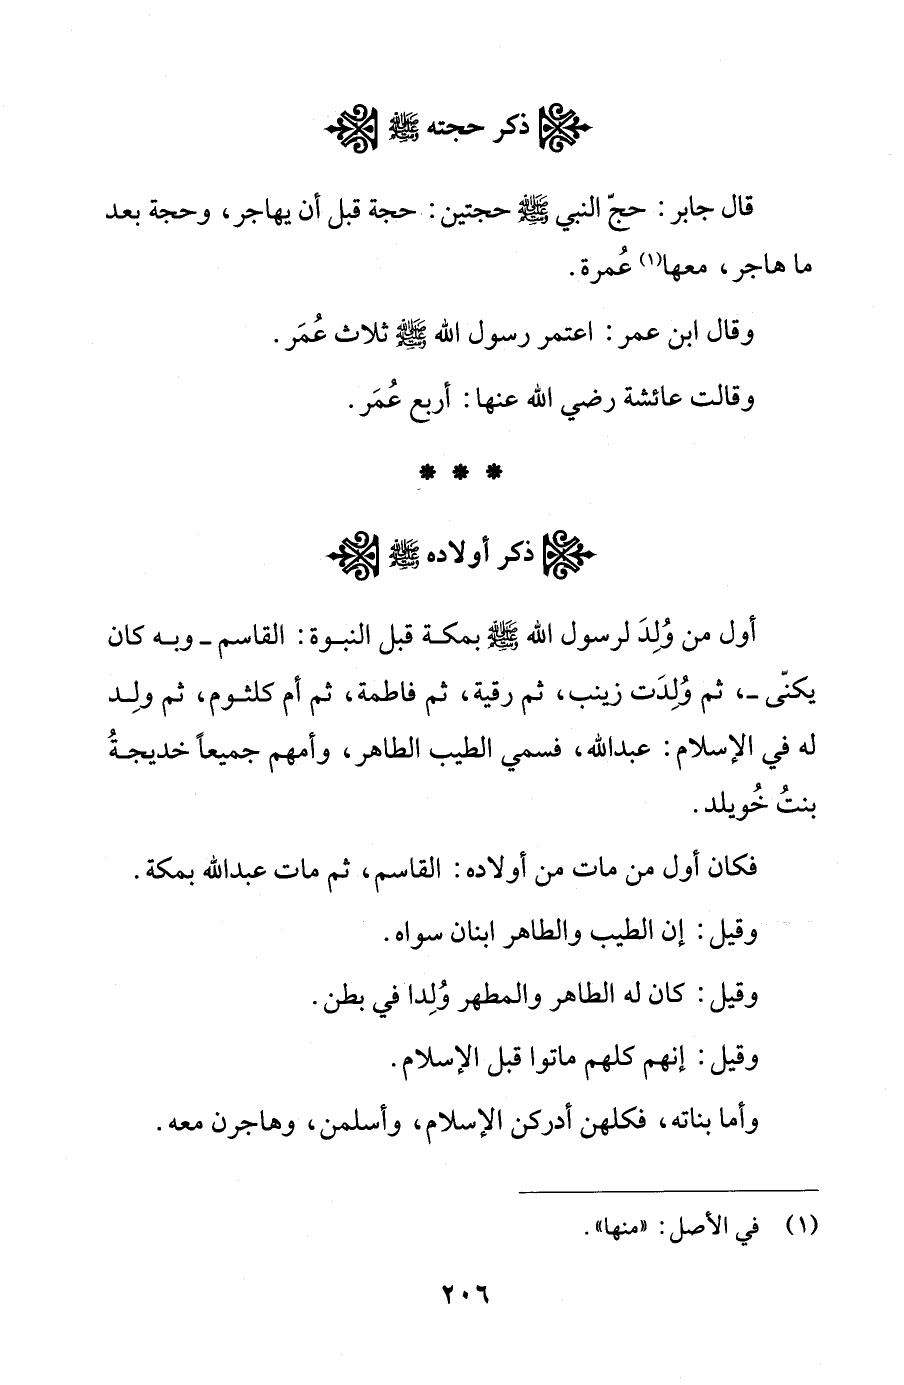 ذكر حجته ﷺ
قال جابر : حجّ النبي ﷺ حجتين : حجة قبل أن يهاجر ، وحجة بعد
ما هاجر ، معها(١) عُمرة .
وقال ابن عمر : اعتمر رسول الله ﷺ ثلاث عُمَر .
وقالت عائشة رضي الله عنها : أربع عُمَر .
* * *
ذكر أولاده ﷺ
أول من وُلِدَ لرسول الله ﷺ بمكة قبل النبوة : القاسم ـ وبه كان
يكنّى ـ، ثم وُلِدَت زينب، ثم رقية، ثم فاطمة، ثم أم كلثوم، ثم ولد
له في الإسلام : عبدالله، فسمي الطيب الطاهر ، وأمهم جميعاً خديجةُ
بنتُ خُويلد .
فكان أول من مات من أولاده : القاسم، ثم مات عبدالله بمكة .
وقيل : إن الطيب والطاهر ابنان سواه .
وقيل : كان له الطاهر والمطهر وُلِدا في بطن .
وقيل : إنهم كلهم ماتوا قبل الإسلام .
وأما بناته، فكلهن أدركن الإسلام، وأسلمن، وهاجرن معه .
(١) في الأصل : «منها» .
٢٠٦